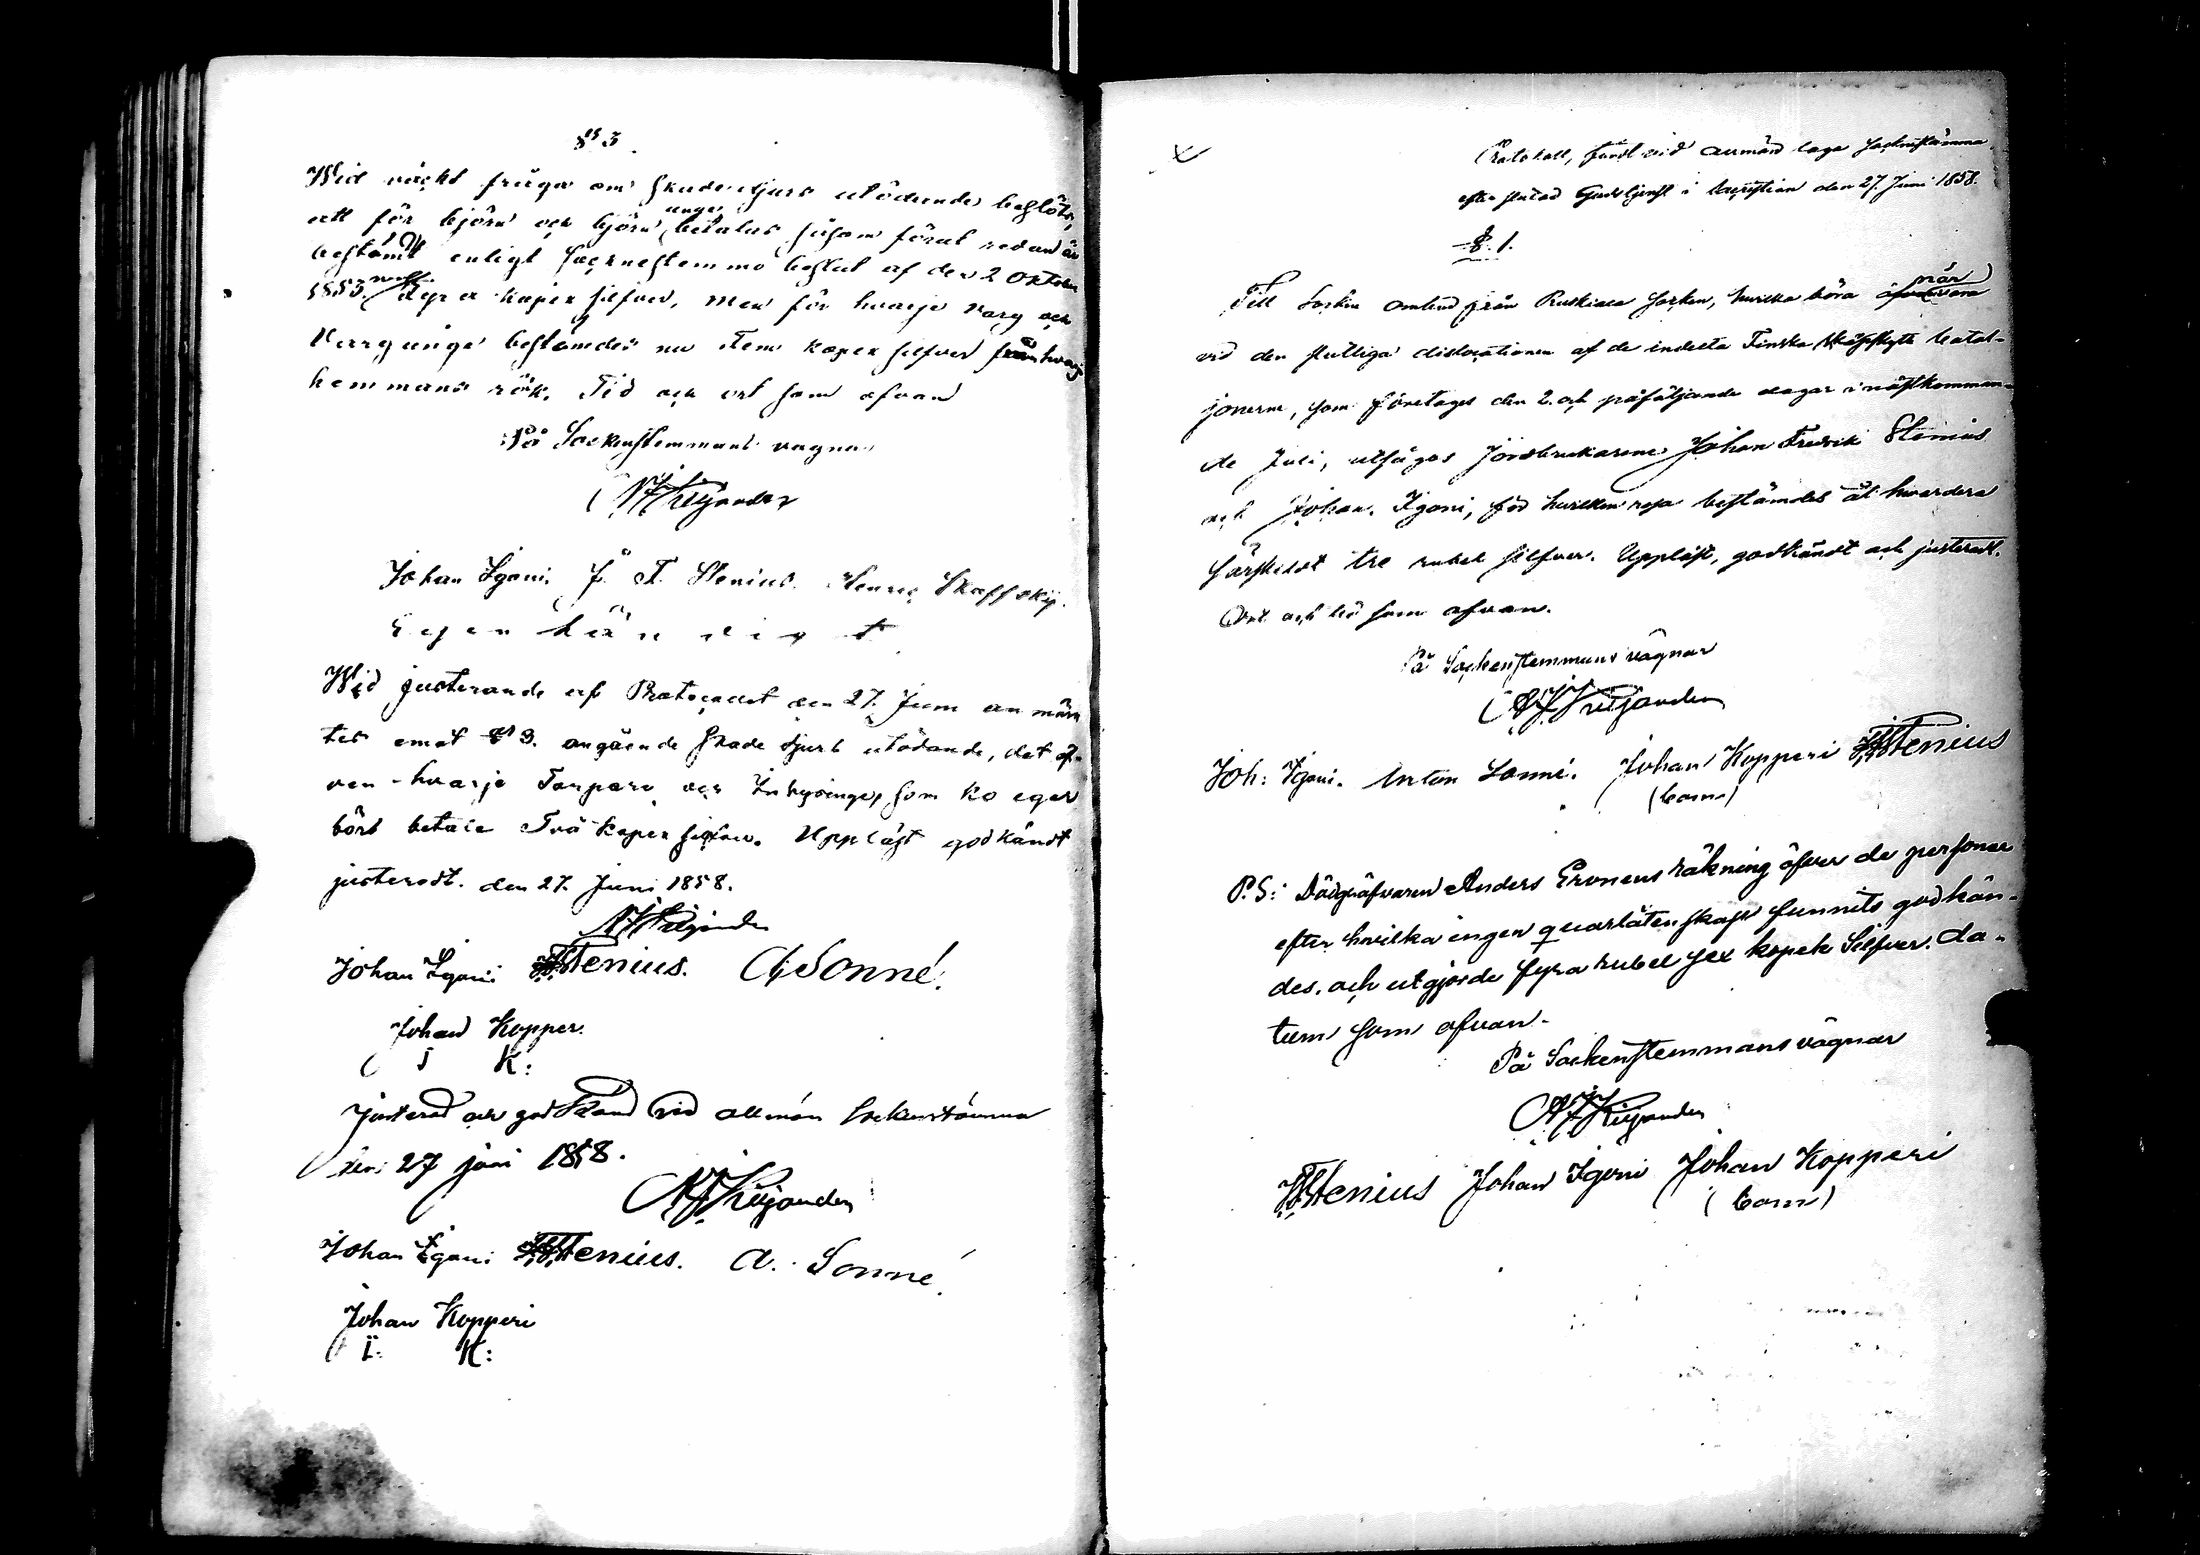 § 3
Wid väckt fråga om skadedjurs utödande beslöts,
att för björn och björn unge betalas såsom förut redan är
bestämdt enligt Sockenstemmo beslut af den 2 Oktober
1853. Fyra kopek silfver, men för hvarje varg och
Vargunge bestämdes nu Fem kopek silfver från hvarje
hemmans rök. Tid och ort som ofvan
På Sockenstemmans vägnar
Johan Igoni. J. F. Stenius. Skaffskij.
Egenhändigt
Wid justerande af Protocollet den 27. Juni an märk
tes emot § 3. angående skade djurs utödande, det äf-
ven hvarje Torpare och Inhysinge, som ko eger
bör betala Två kopek silfver. Uppläst godkändt
justeradt. den 27. Juni 1858.
Johan Igoni Stenius. A Sonné.
Johan Kopperi
J K:
Justerad och godkänd vid allmän Sockenstämma
den 27 juni 1858.
Johan Igoni Stenius. A. Sonné
Johan Kopperi
I: K:
Protokoll, fördt vid allmän laga sockenstämma
efter slutad Gudstjenst i Sacristian den 27. Juni 1858.
§. 1.
Till Socken ombud från Ruskiala socken, hvilka böra när vara
vid den slutliga dislocationen af de indelta Finska skarpskytte batal-
jonerne, som företages den 2. och påföljande dagar i nästkomman-
de Juli, utsågos Jordbrukarene Johan Fredrik Stenius
och Johan Igoni, för hvilken resa bestämdes åt hvardera
särskildt tre rubel silfver. Uppläst, godkändt och justeradt.
Ort och tid som ofvan.
På Sockenstemmans vägnar
Joh: Igoni. Anton Sonné. Johan Kopperi Stenius
P.S: Dödgräfvaren Anders Eronens räkning öfver de personer
efter hvilka ingen quarlåtenskap funnits godkän-
des, och utgjorde fyra rubel sex kopek Silfver. Da-
tum som ofvan.
På Sockenstemmans vägnar
Stenius Johan Igoni Johan Kopperi